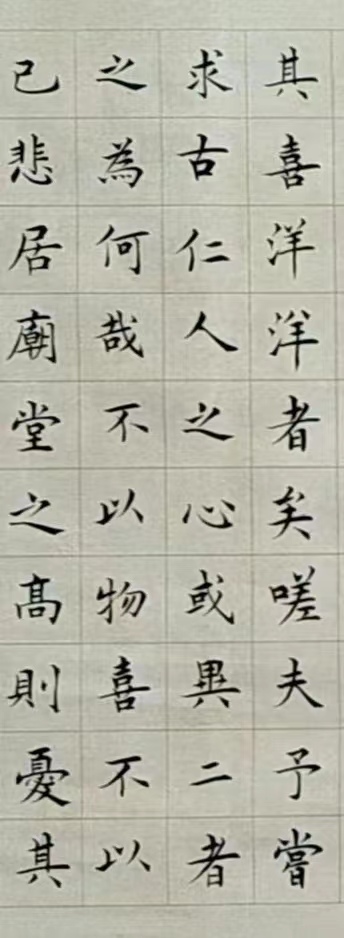 其喜洋洋者矣嗟夫予嘗
求古仁人之心或異二者
之為何哉不以物喜不以
己悲居廟堂之高則憂其